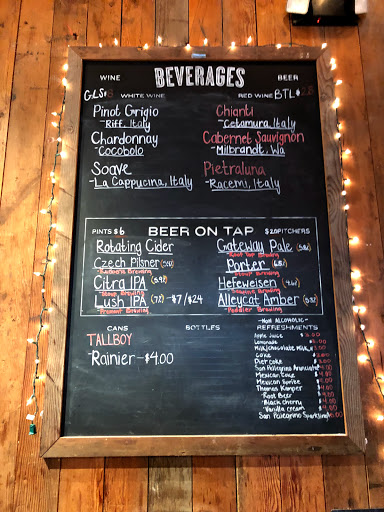 WINE BEVERAGES BEER
GLS WHITE WINE RED WINE BTL
Pinot Grigio
-Riff, Italy
Chardonnay
-Cocobolo
Soave
-La Cappucina, Italy
Chianti
-Cetamura, Italy
Cabernet Sauvignon
-Milbrandt, Wa
Pietraluna
-Racemi, Italy
PINTS $6 BEER ON TAP $20 PITCHERS
Rotating Cider
Czech Pilsner
Brewing
Citra IPA
Brewing
Lush IPA -$7/$24
Fremont Brewing
Gateway Pale
Brewing
Porter
Brewing
Hefeweisen
Brewing
Alleycat Amber
Brewing
CANS BOTTLES
TALLBOY
-Rainier-$4.00
-NON ALCOHOLIC-
REFRESHMENTS
Apple Juice
Lemonade
Milk/chocolate Milk
Coke
Diet Coke
San Pellegrino Aranciata
Mexican Coke
Mexican Sprite
Thomas Kemper
-Root Beer
-Black Cherry
-Vanilla cream
San Pellegrino Sparkling